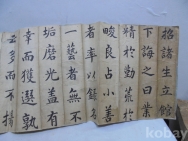 招諸生立館
下誨之曰業
精於勤荒於
畯良占小善
者率以錄名
一藝者無不
垢磨光蓋有
幸而獲選孰
云多而不揚
kobay